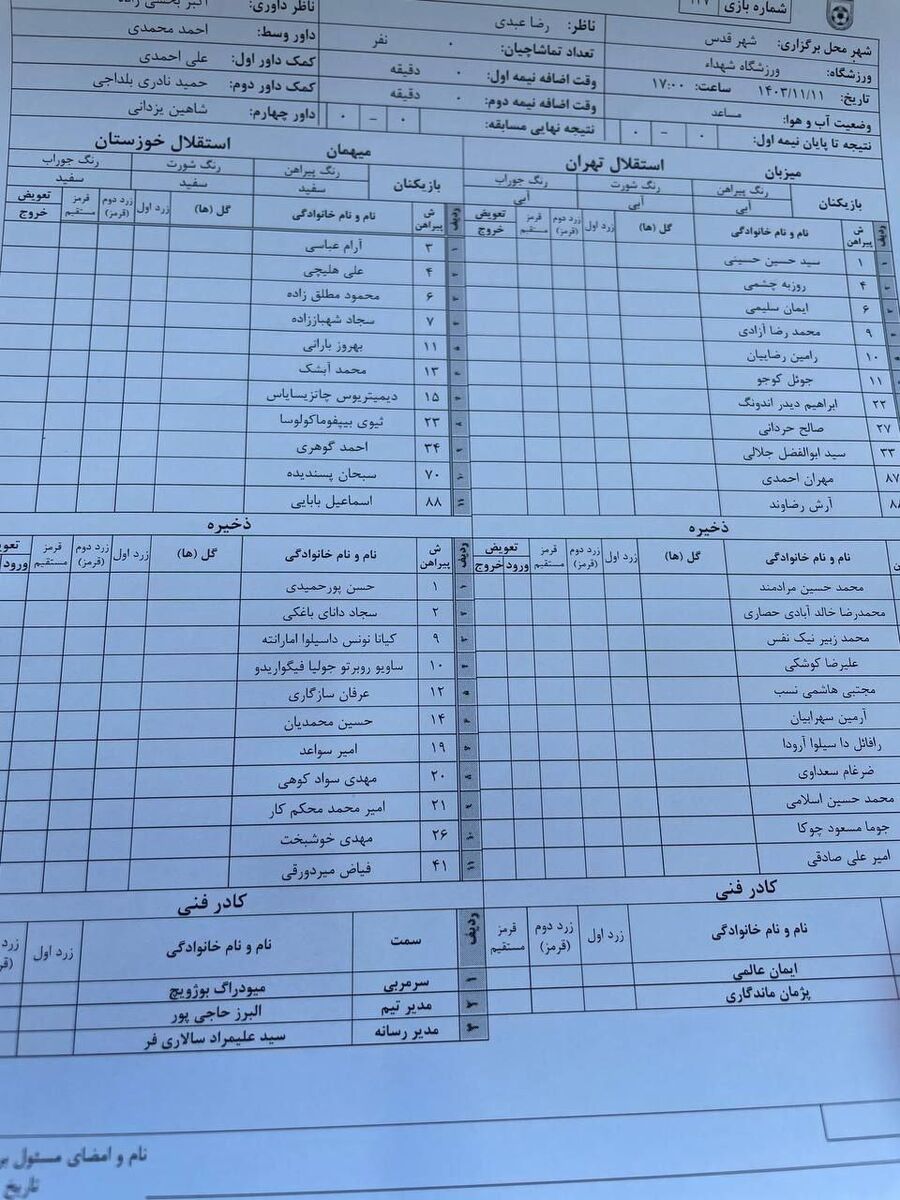 شماره بازی ۱۲۷
شهر محل برگزاری: شهر قدس
ورزشگاه: ورزشگاه شهداء
تاریخ: ۱۴۰۳/۱۱/۱۱ ساعت: ۱۷:۰۰
وضعیت آب و هوا: مساعد
نتیجه تا پایان نیمه اول: ۰ - ۰
ناظر: رضا عبدی
تعداد تماشاچیان: ۰ نفر
وقت اضافه نیمه اول: ۰ دقیقه
وقت اضافه نیمه دوم: ۰ دقیقه
نتیجه نهایی مسابقه: ۰ - ۰
ناظر داوری: اکبر بخشی زاده
داور وسط: احمد محمدی
کمک داور اول: علی احمدی
کمک داور دوم: حمید نادری بلداجی
داور چهارم: شاهین یزدانی
میزبان استقلال تهران
بازیکنان رنگ پیراهن رنگ شورت رنگ جوراب
آبی آبی آبی
ردیف ش پیراهن نام و نام خانوادگی گل (ها) زرد اول زرد دوم (قرمز) قرمز مستقیم تعویض خروج
۱ ۱ سید حسین حسینی
۲ ۴ روزبه چشمی
۳ ۶ ایمان سلیمی
۴ ۹ محمد رضا آزادی
۵ ۱۰ رامین رضاییان
۱۱ جوئل کوجو
۲۲ ابراهیم دیدر اندونگ
۲۷ صالح حردانی
۳۳ سید ابوالفضل جلالی
۸۷ مهران احمدی
آرش رضاوند
ذخیره
نام و نام خانوادگی گل (ها) زرد اول زرد دوم (قرمز) قرمز مستقیم تعویض ورود خروج
محمد حسین مرادمند
محمدرضا خالد آبادی حصاری
محمد زبیر نیک نفس
علیرضا کوشکی
مجتبی هاشمی نسب
آرمین سهرابیان
رافائل دا سیلوا آرودا
ضرغام سعداوی
محمد حسین اسلامی
جوما مسعود چوکا
امیر علی صادقی
کادر فنی
نام و نام خانوادگی زرد اول زرد دوم (قرمز) قرمز مستقیم
ایمان عالمی
پژمان ماندگاری
میهمان استقلال خوزستان
بازیکنان رنگ پیراهن رنگ شورت رنگ جوراب
سفید سفید سفید
ردیف ش پیراهن نام و نام خانوادگی گل (ها) زرد اول زرد دوم (قرمز) قرمز مستقیم تعویض خروج
۱ ۳ آرام عباسی
۲ ۴ علی هلیچی
۳ ۶ محمود مطلق زاده
۴ ۷ سجاد شهباززاده
۵ ۱۱ بهروز بارانی
۶ ۱۳ محمد آبشک
۷ ۱۵ دیمیتریوس چاتزیسایاس
۸ ۲۳ ثیوی بیپفوماکولوسا
۹ ۳۴ احمد گوهری
۱۰ ۷۰ سبحان پسندیده
۱۱ ۸۸ اسماعیل بابایی
ذخیره
ردیف ش پیراهن نام و نام خانوادگی گل (ها) زرد اول زرد دوم (قرمز) قرمز مستقیم ورود
۱ ۱ حسن پورحمیدی
۲ ۲ سجاد دانای باغکی
۳ ۹ کیاتا نونس داسیلوا امارانته
۴ ۱۰ ساویو روبرتو جولیا فیگواریدو
۵ ۱۲ عرفان سازگاری
۶ ۱۴ حسین محمدیان
۷ ۱۹ امیر سواعد
۸ ۲۰ مهدی سواد کوهی
۹ ۲۱ امیر محمد محکم کار
۱۰ ۲۶ مهدی خوشبخت
۱۱ ۴۱ فیاض میردورقی
کادر فنی
ردیف سمت نام و نام خانوادگی زرد اول
۱ سرمربی میودراگ بوژوویچ
۲ مدیر تیم البرز حاجی پور
۳ مدیر رسانه سید علیمراد سالاری فر
نام و امضای مسئول
تاریخ